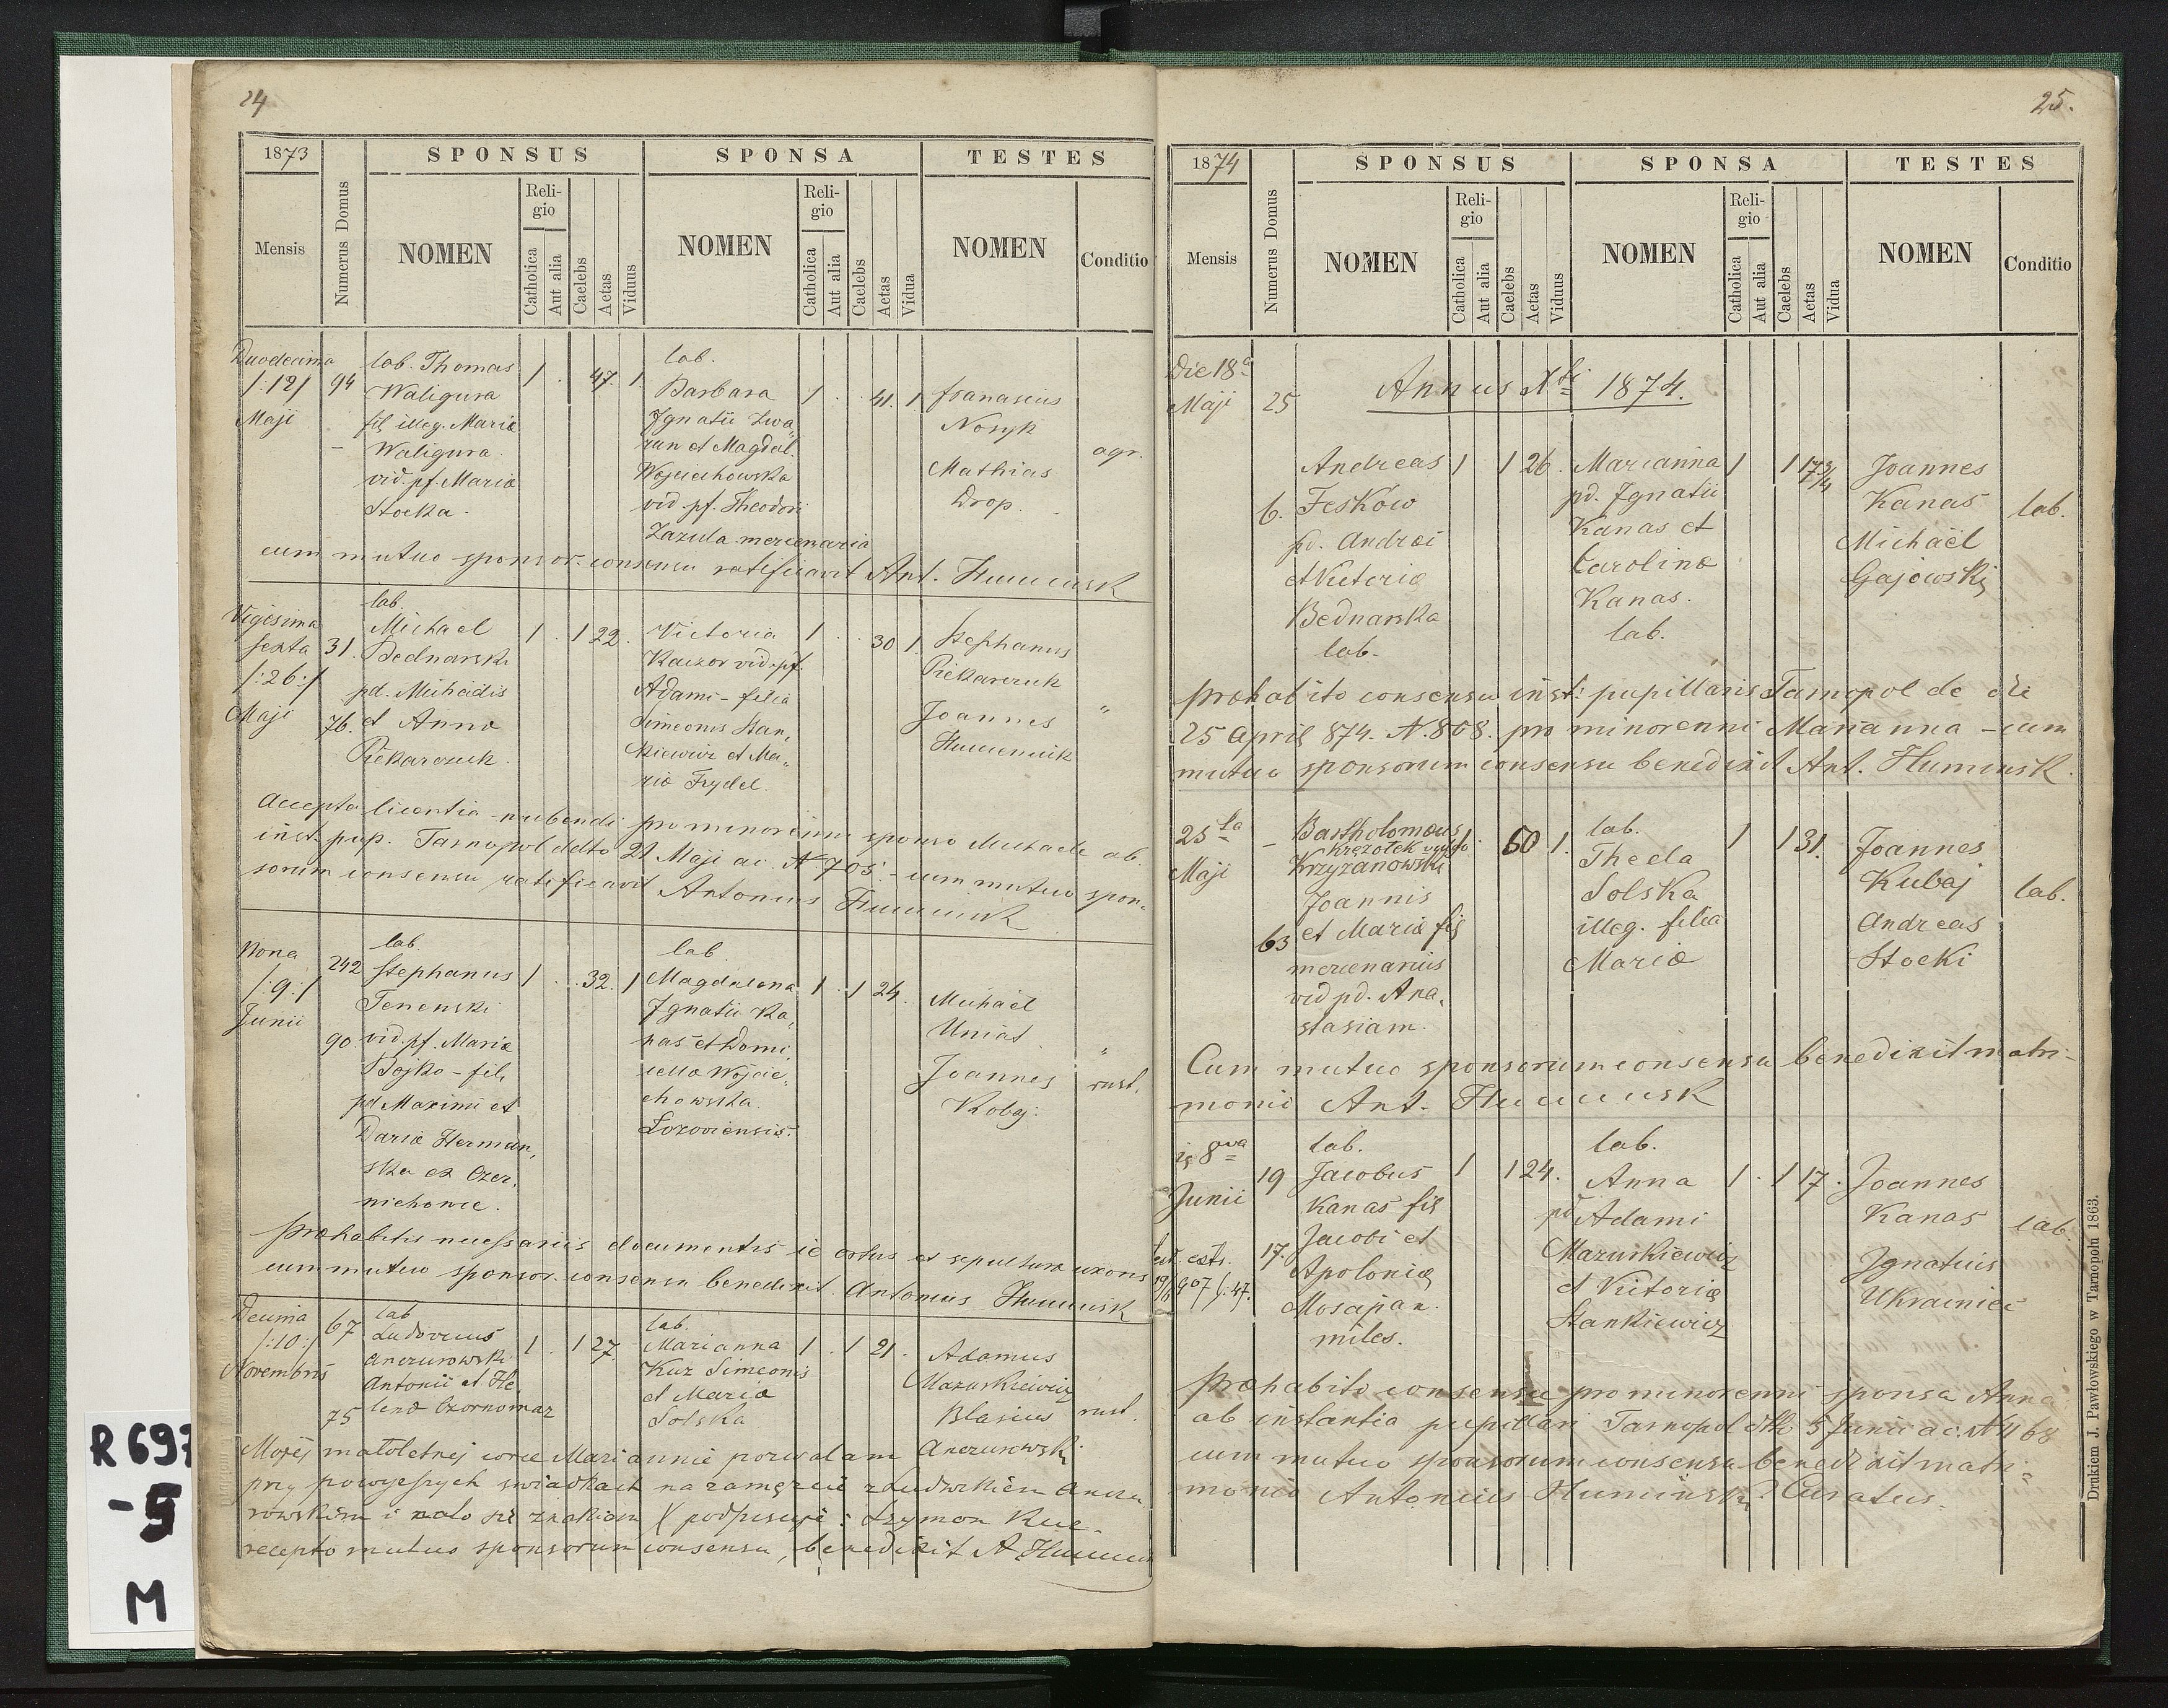 24
1873
SPONSUS
SPONSA
TESTES
Mensis
Numerus Domus
NOMEN
Religio
Catholica
Aut alia
Caelebs
Aetas
Viduus
NOMEN
Religio
Catholica
Aut alia
Caelebs
Aetas
Vidua
NOMEN
Conditio
Duodecima
/:12/
Maji
94
lab. Thomas
Waligura
fil illeg. Mariæ
Waligura
vid. pf. Mariæ
Stocka
1 . . 47. 1
lab.
Barbara
Ignatii Zwa„
run et Magdal.
Wojciechowska
vid. pf. Theodori
Zazula mercenaria
1 . . 41. 1
Nosyk
Mathias
Drop.
agr.
cum mutuo sponsor. consensu ratificavit Ant. Huminsk
Vigesima
sexta
/:26:/
Maji
31.
76.
lab.
Michael
Bednarski
pd. Michaelis
et Annæ
Piekarczuk
1 . 1 22.
Victoria
Kaczor vid. pf.
Adami - filia
Simeonis Stan„
kiewicz et Ma„
riæ Frydel.
1 . . 30 1.
Stephanus
Piekarczuk
Joannes
Huminiuk
"
Accepta licentia nubendi pro minorenni sponso Michaele ab.
inst. pup. Tarnopol ddto 21 Maji ac. N 705. - cum mutuo spon„
sorum consensu ratificavit Antonius Huminsk
Nona
/:9:/
Junii
242
90
lab.
Stephanus
Tenenski
vid. pf. Mariæ
Bojko - fil.
pd Maximi et
Dariæ Herman„
ska ex Czer„
nichowce.
1 . . 32. 1
lab.
Magdalena
Ignatii Ka„
nas et Domi„
cellæ Wojcie„
chowska
Lozoviensis.
1 . 1 24.
Michaël
Uniat
Joannes
Kobaj.
"
rust.
Præhabitis necessariis documentis ie ortus et sepulturæ uxoris
cum mutuo sponsor. consensu benedixit. Antonius Huminsk
Decima
/:10:/
Novembris
67
75
lab
Ludovicus
Anczurowski
Antonii et He„
lenæ Czornomaz
1 . 1 27.
lab.
Marianna
Kuz Simeonis
et Mariæ
Solska
1 . 1 21.
Adamus
Mazurkiewicz
Blasius
Anczurowski
rust.
Mojéj małoletnej córce Mariannie pozwalam
przy powyższych świadkach na zamęzcie z Ludwikiém Anczu„
rowskim i na to się znakiem X podpisuje: Szymon Kuz.
recepto mutuo sponsorum consensu, benedixit A Humins
25.
1874
SPONSUS
SPONSA
TESTES
Mensis
Numerus Domus
NOMEN
Religio
Catholica
Aut alia
Caelebs
Aetas
Viduus
NOMEN
Religio
Catholica
Aut alia
Caelebs
Aetas
Vidua
NOMEN
Conditio
Annus Xti 1874.
Die 18a
Maji
25
6.
Andreas
Feskow
pd. Andreæ
et Victoriæ
Bednarska
lab.
1 1 26.
Marianna
pd. Ignatii
Kanas et
Carolinæ
Kanas.
lab.
1 1 17 3/4
Joannes
Kanas
Michaël
Gajowski
lab.
Præhabito consensu inst: pupillaris Tarnopol de die
25 April 874. N. 808. pro minorenni Marianna - cum
mutuo sponsorum consensu benedixit Ant. Huminsk.
25ta
Maji
–
63
Bartholomæus
Kręzołek vulgo
Krzyzanowski
Joannis
et Mariæ fil
mercenarius
vid pd. Ana„
stasiam.
1. 60 1.
lab.
Thecla
Solska
illeg. filia
Mariæ
1 1 31.
Joannes
Kubaj
Andreas
Stocki
lab.
Cum mutuo sponsorum consensu benedixit matri-
monio Ant. Huminsk
8ava
Junii
19
17.
lab.
Jacobus
Kanas fil
Jacobi et
Apoloniæ
Mosapan.
miles.
1 1 24.
lab.
Anna
pd Adami
Mazurkiewicz
et Victoriæ
Stankiewicz
1 . 1 17.
Joannes
Kanas
Ignatius
Ukrainiec
lab.
Præhabito consensu pro minorenni sponsa Anna
ab instantia pupillari Tarnopol ddto 5 Junii a c. N 1168
cum mutuo sponsorum consensu benedixit matri=
monio Antonius Huminski Curatus.
Drukiem J. Pawłowskiego w Tarnopolu 1863.
R 697
-5
M